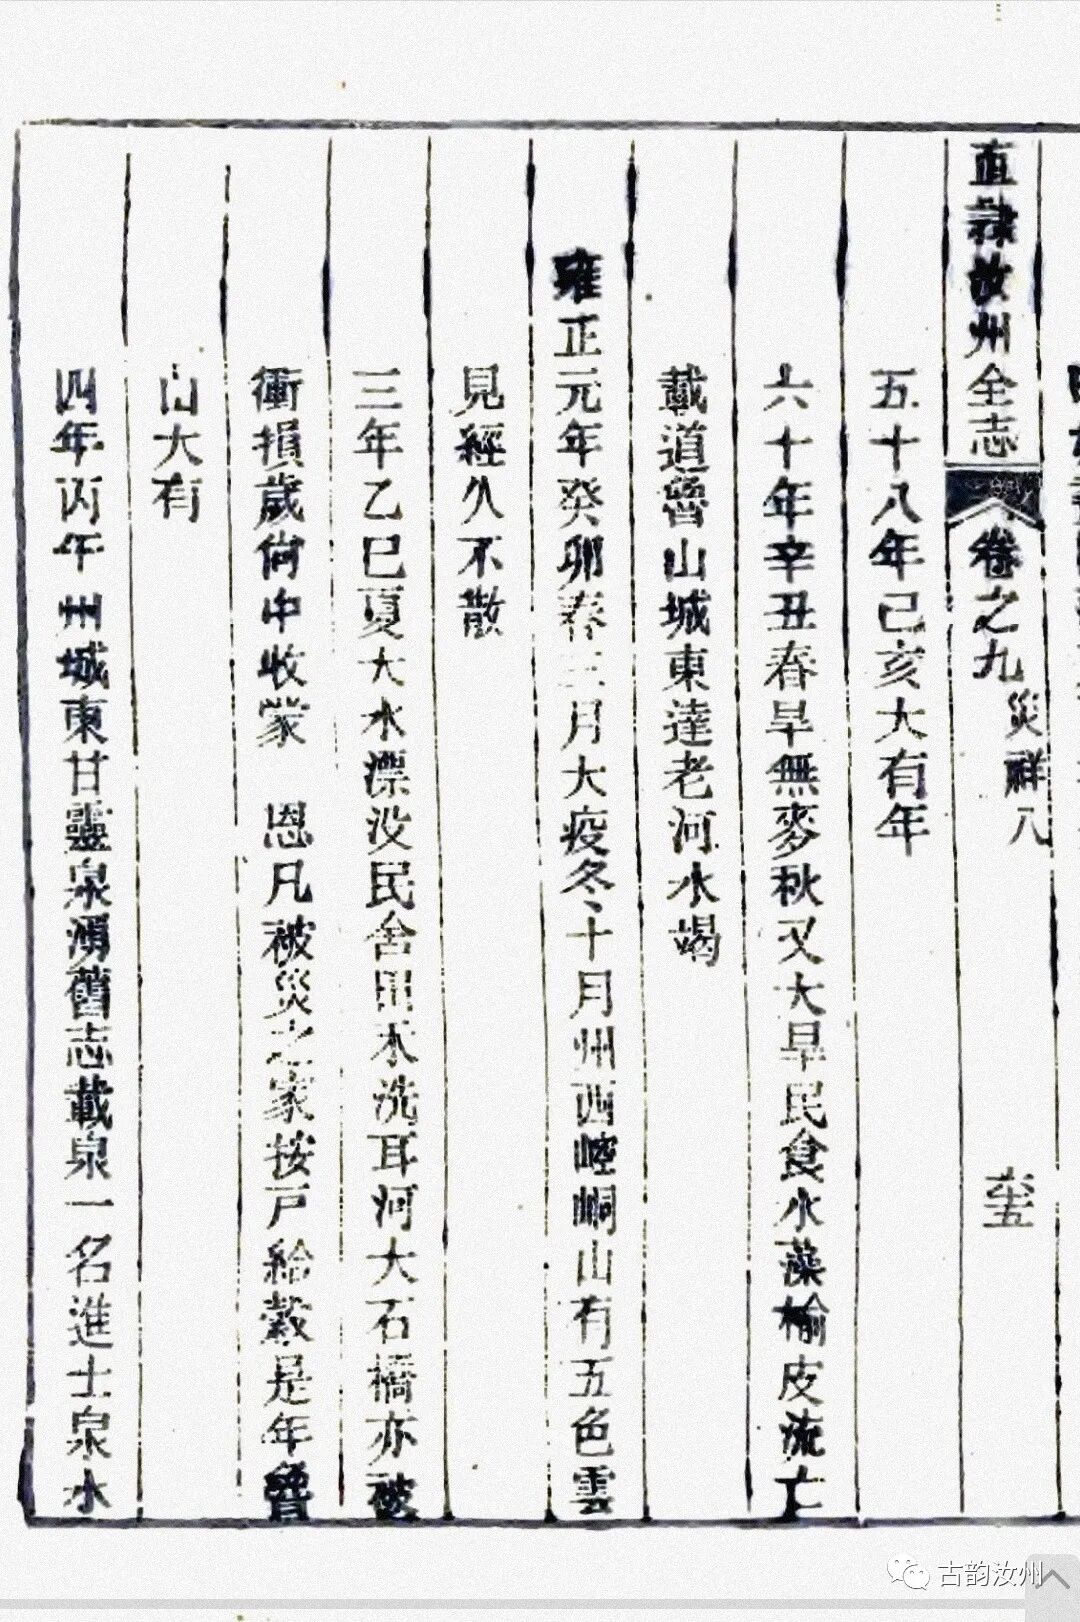 直隸汝州全志 卷之九 災祥八 奎
五十八年己亥大有年
六十年辛丑春旱無麥秋又大旱民食水藻榆皮流亡
載道魯山城東達老河水竭
雍正元年癸卯春三月大疫冬十月州西崆峒山有五色雲
見經久不散
三年乙巳夏大水漂没民舍田禾洗耳河大石橋亦被
衝損歲尙中收蒙 恩凡被災之家按戸給穀是年魯
山大有
四年丙午州城東甘靈泉湧舊志載泉一名進士泉水
古韵汝州